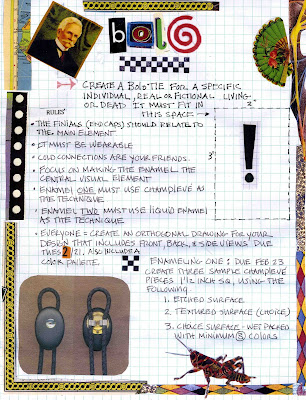 bolo
CREATE A BOLO TIE FOR A SPECIFIC
INDIVIDUAL, REAL OR FICTIONAL LIVING
OR DEAD IT MUST FIT IN
THIS SPACE → 2"
RULES
• THE FINIALS (ENDCAPS) SHOULD RELATE TO
THE MAIN ELEMENT
• IT MUST BE WEARABLE
• COLD CONNECTIONS ARE YOUR FRIENDS.
3"
!
• FOCUS ON MAKING THE ENAMEL THE
CENTRAL VISUAL ELEMENT
• ENAMEL ONE MUST USE CHAMPLEVÉ AS
THE TECHNIQUE
• ENAMEL TWO MUST USE LIQUID ENAMEL
AS THE TECHNIQUE
• EVERYONE - CREATE AN ORTHOGONAL DRAWING FOR YOUR
DESIGN THAT INCLUDES FRONT, BACK, & SIDE VIEWS DUE
TUES 2/21. ALSO INCLUDE A
COLOR PALETTE.
ENAMELING ONE: DUE FEB 23
CREATE THREE SAMPLE CHAMPLEVÉ
PIECES 1 1/2 INCH SQ, USING THE
FOLLOWING
1. ETCHED SURFACE
2. TEXTURED SURFACE (CHOICE)
3. CHOICE SURFACE - WET PACKED
WITH MINIMUM 5 COLORS